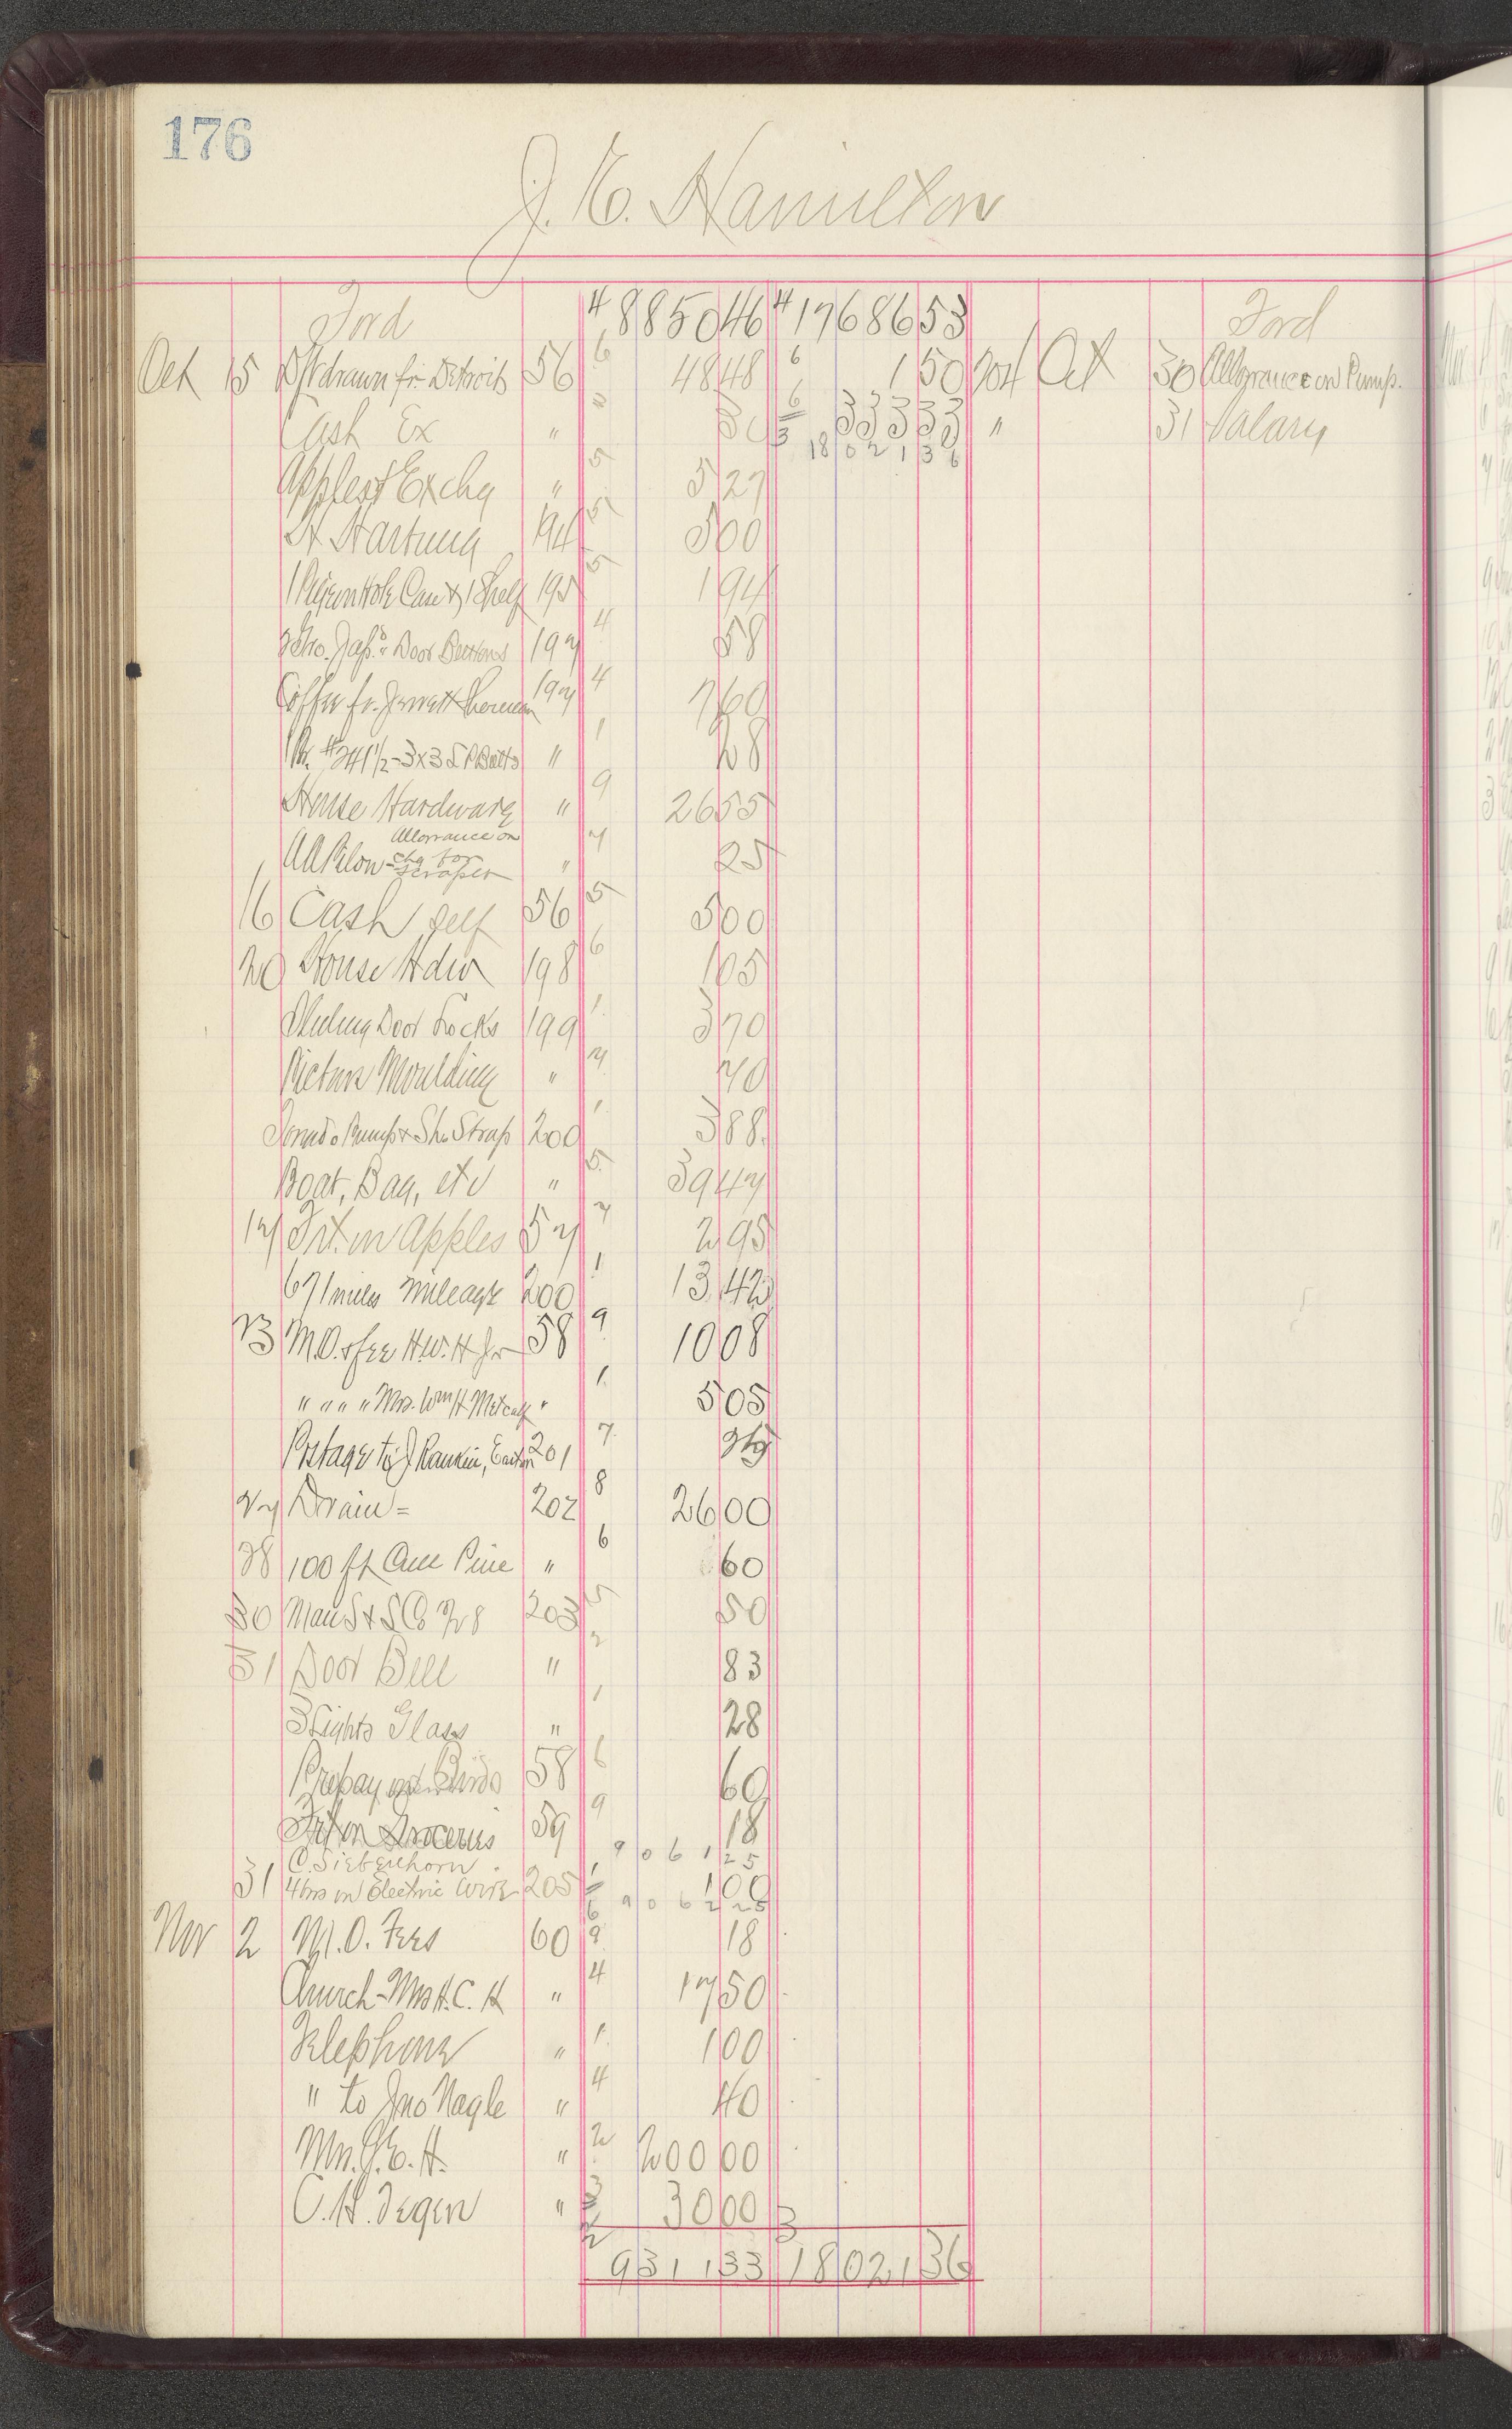 176
J. E. Hamilton
Ford 4 885046 4 1768653 Ford
Oct 15 Dft drawn fr. Detroit 56 6 4848 6 150 204 Oct 30 Allowance on Pump.
Cash Ex " 30 33333 " 31 Salary
18 0 2 1 3 6
Apples & Exchg " 5 527
H Hartung 194 5 500
1 Pigeon Hole Case & 1 Shelf 195 5 194
Door Buttons 197 4 58
Coffee fr. Jewett & Sherman 197 4 760
1 Pr. #241½-3x3 Butts " 1 28
House Hardware " 9 2655
Allowance on
" 7 25
chg for
scraper
16 Cash self 56 5 500
20 House Hdw 198 6 105
Sliding Door Locks 199 1 370
Picture Moulding " 7 70
Pump & Strap 200 1 388
Boat, Bag, etc " 5 3947
17 Frt. on Apples 57 7 295
671 miles mileage 200 1 1342
23 M.O. & fee H.W.H Jr 58 9 1008
" " " " Mrs. Wm H Metcalf " 1 505
Postage to J Rankin, 201 7
27 Drain = 202 8 2600
28 100 ft Pine " 6 60
30 203 5 50
31 Door Bell " 2 83
3 Lights Glass " 1 28
Prepay on Birds 58 6 60
Frt on Groceries 59 9 18
9 0 6 1 2 5
C. Siebenhorn
31 4 hrs on Electric Wire 205 1 100
9 0 6 2 2 5
Nov 2 M.O. Fees 60 9 18
Church - Mrs H. C. H " 4 1750
Telephone " 1 100
" to Jno Nagle " 4 40
Mrs. J. E. H. " 2 20000
C. H. Degen " 3 3000 3
931133 1802136